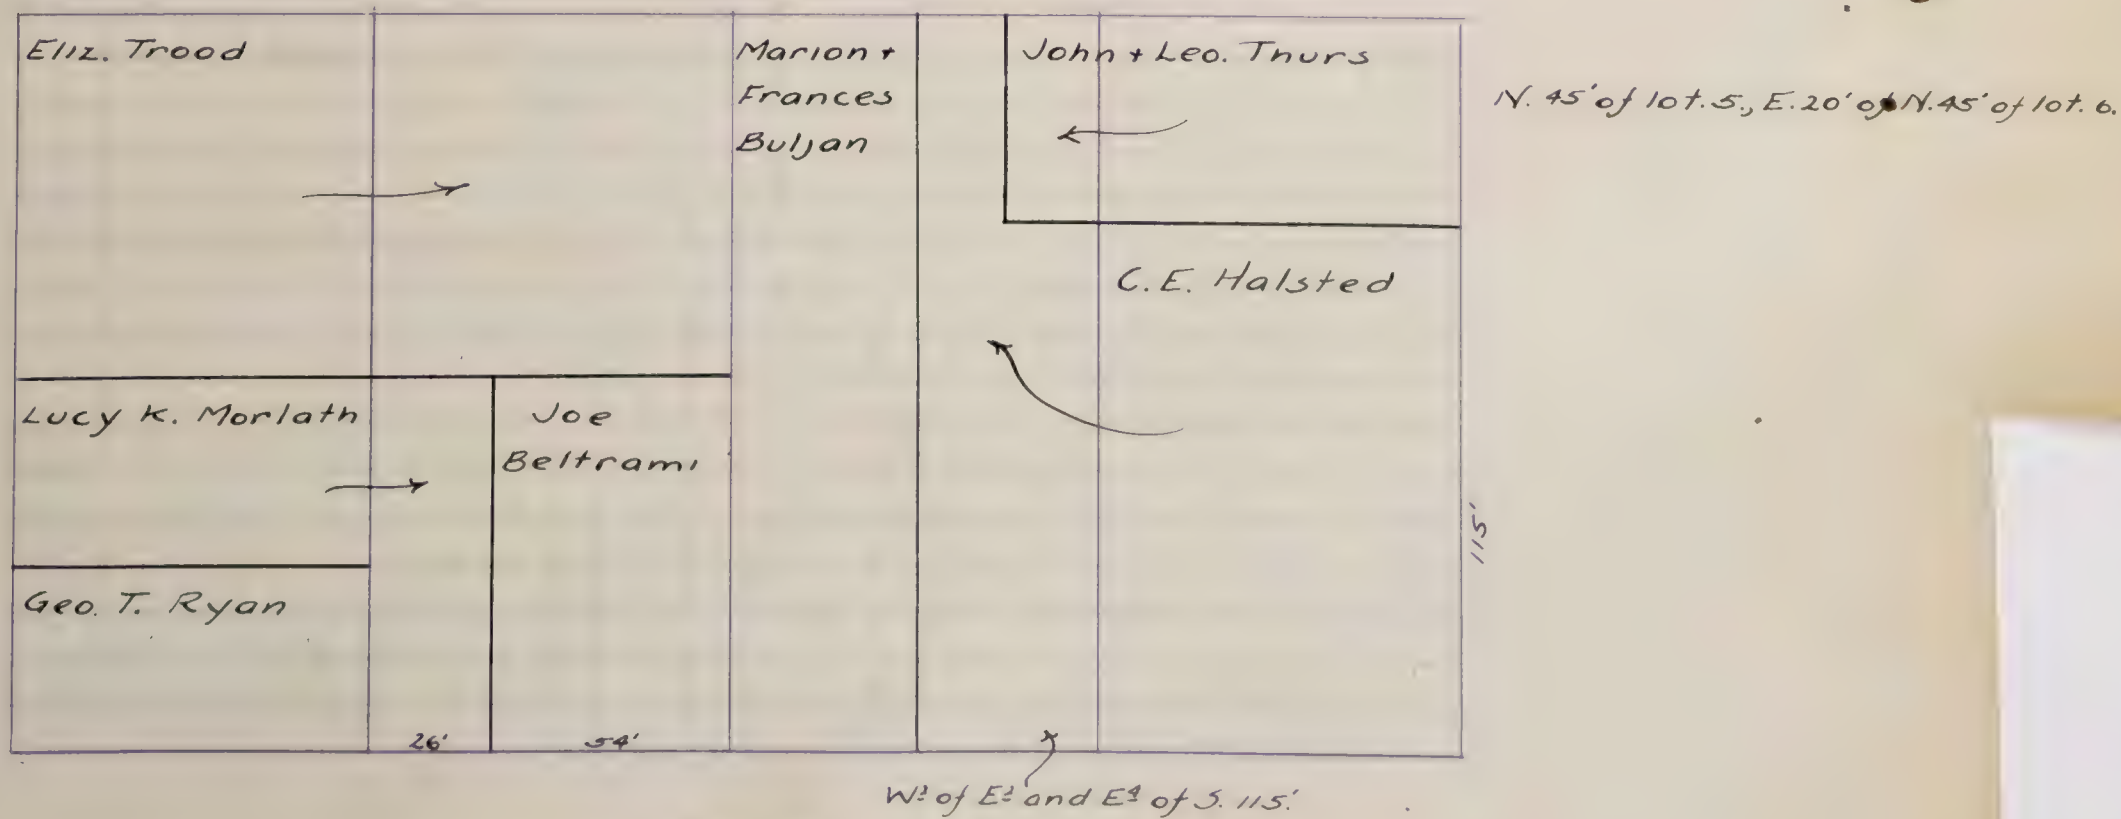 Eliz. Trood
Marion +
Frances
Buljan
John + Leo. Thurs
N. 45' of lot. 5., E. 20' of N. 45' of lot. 6.
C.E. Halsted
Lucy K. Morlath
Joe
Beltrami
115'
Geo. T. Ryan
26'
54'
W½ of E½ and E¼ of S. 115.'